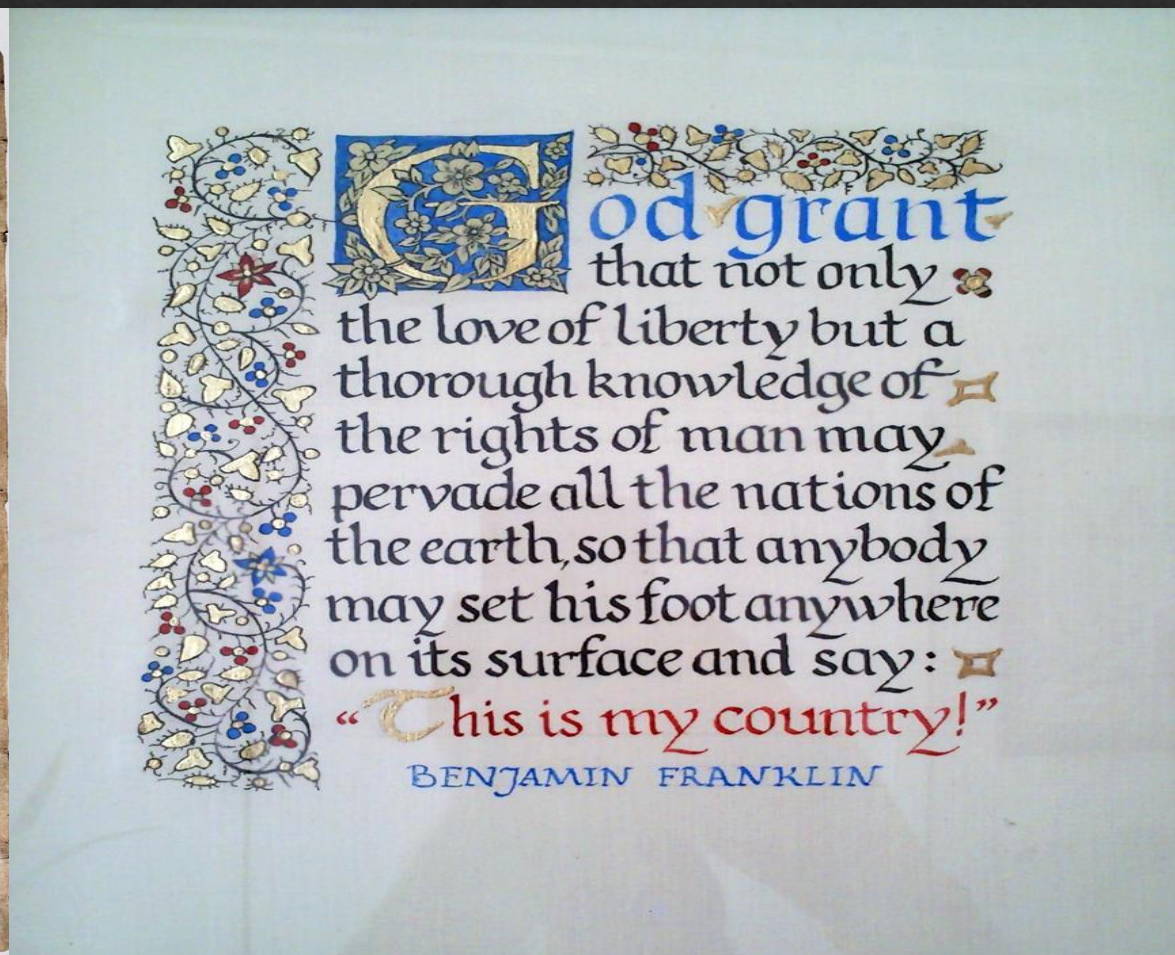 God grant
that not only
the love of liberty but a
thorough knowledge of
the rights of man may
pervade all the nations of
the earth, so that anybody
may set his foot anywhere
on its surface and say:
“This is my country!”
BENJAMIN FRANKLIN